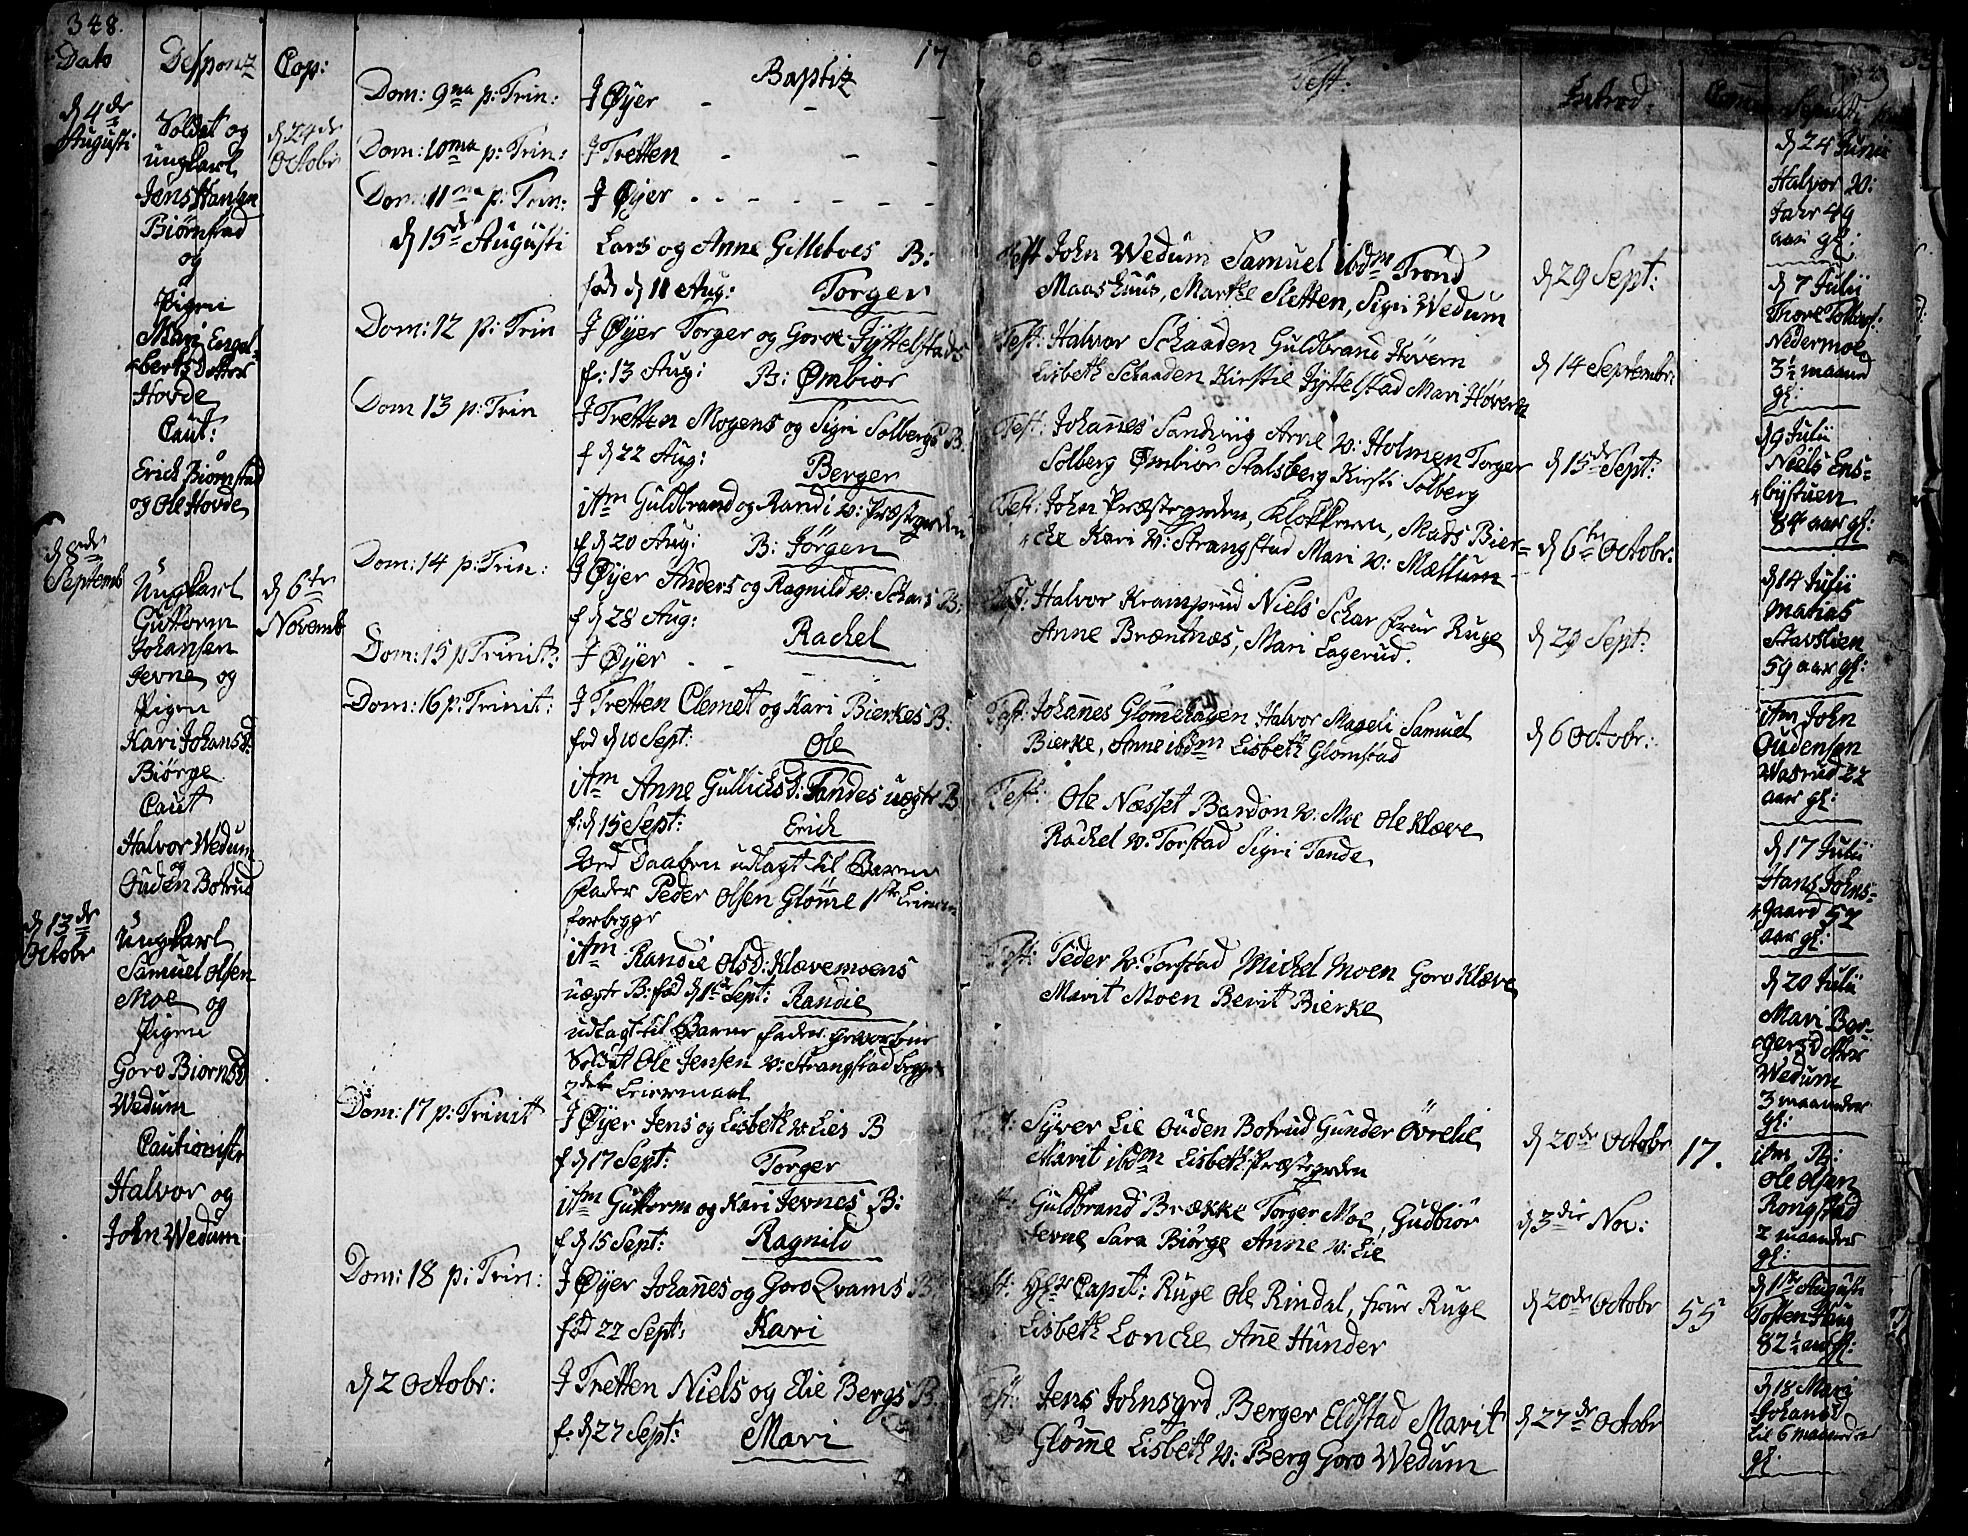 348.
Dato
Despons
Cop:
17
Baptiz
Test:
Introd.
d 4de
Augusti
Soldat og
ungkarl
Jens Hansen
Biørnstad
og
Pigen
Mari Engel-
bertsDotter
Hovde
Caut:
Erich Biørnstad
og Ole Hovde
d 24de
Octobr
d 8de
Septemb
Ungkarl
Guttorm
Johansen
Jevne og
Pigen
Kari Johansd:
Biørge
Caut
Halvor Wedum
og
Ouden Botrud
d 6te
Novemb
d 13de
Octobr
Ungkarl
Samuel Olsen
Moe og
Pigen
Goro Biørnsd
Wedum
Cautionister
Halvor og
John Wedum
Dom: 9na p: Trin:
J Øyer
Dom: 10ma p: Trin:
J Tretten
Dom: 11ma p: Trin:
J Øyer
d 15de Augusti
Lars og Anne Gilleboes B:
fød d 11 Aug: Torger
Dom: 12 p: Trin
J Øyer Torger og Goroe Jyttelstads
f: 13 Aug: B: Ømbior
Dom 13 p: Trin
J Tretten Mogens og Sigri Solbergs B.
f d 22 Aug:
Berger
itm Guldbrand og Randi v: Præstegrden
f d 20 Aug: B: Jørgen
Dom: 14 p: Trin:
J Øyer Anders og Ragnild v: Schars B:
f d 28 Aug:
Rachel
Dom: 15 p Trinit:
J Øyer
Dom: 16 p: Trinit:
J Tretten Clemet og Kari Bierkes B:
fød d 10 Sept:
Ole
itm Anne Gullichsd: Tandes uægte B
f: d 15 Sept: Erich
Ved Daaben udlagt til Barne
fader Peder Olsen Glom̄e 1ste
itm Randie Olsd: Klævemoens
uægte B: fød d 1ste Sept: Randie
udlagt til Barne fader
Soldat Ole Jensen v: Strangstad begges
2det Leiermaal
Dom: 17 p: Trinit
J Øyer Jens og Lisbeth v: Lies B
f d 17 Sept:
Torger
itm Guttorm og Kari Jevnes B:
f d 15 Sept:
Ragnild
Dom: 18 p: Trin:
J Øyer Johan̄es og Goro Qvams B
fød 22 Sept: Kari
d 2 Octobr:
J Tretten Niels og Elie Bergs B.
f: d 27 Sept: Mari
Test John Wedum Samuel ibdm Trond
Maashuus, Marthe Sletten, Sigri Wedum
d 29 Sept:
Test: Halvor Schaaden Guldbrand Høvern
Lisbeth Schaaden Kirstie Jyttelstad Mari Høvern
d 14 Septembr:
Test: Johan̄es Sandviig Arne v: Holmen Torger
Solberg Ømbior Stalsberg Kirsti Solberg
d 15de Sept:
Test: John Præstegrden, Klokkeren, Mads Bier-
che Kari v: Strangstad Mari v: Mællum
d 6te Octobr:
Test: Halvor Kramprud Niels Schar frue Ruge
Anne Brændnæs, Mari Lagerud.
d 29 Sept:
Test: Johan̄es Glom̄ehagen Halvor Mageli Samuel
Bierke, Anne ibdm Lisbeth Glomstad
d 6 Octobr:
Test: Ole Næsset Bardon v: Moe Ole Klæve
Rachel v: Torstad Sigri Tande
Test: Peder v: Torstad Michel Moen Goro Klæve
Marit Moen Berit Bierke
Syver Lie Ouden Botrud Gunder Øvrelie
Marit ibdm Lisbeth Præstegrden
d 20de Octobr
17.
Guldbrand Brække Torger Moe, Gudbiør
Jevne Sara Biørge Anne v: Lie
d 3die Nov:
Hr Capit: Ruge Ole Rindal, frue Ruge
Lisbeth Lonche An̄e Hunder
d 20de Octobr
55
Test: Jens Johnsgrd Berger Eldstad Marit
Glom̄e Lisbeth v: Berg Goro Wedum
d 27de Octobr
d 24 Junii
Halvor
49
aar gl:
d 7 Julii
Thore
Nedermoe
3½ maaned
gl:
d 9 Julii
Niels Ens-
bystuen
84 aar gl:
d 14 Julii
Matias
Stavslien
59 aar gl:
itm John
Oudensen
Wasrud 22
aar gl:
d 17 Julii
Hans Johns-
gaard 57
aar gl:
d 20 Julii
Mari Ber-
gersdotter
Wedum
3 maaneder
gl:
itm
Ole Olsen
Rongstad
2 maaneder
gl:
d 1ste Augusti
Tosten Haug
82½ aar gl:
d 18 Mari
Johansd
Lie 6 maaneder
gl: